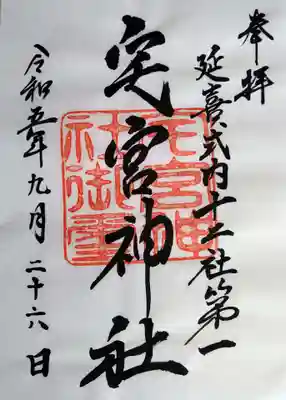 奉拝
延喜式内十二社第一
宅宮神社
令和五年九月二十六日